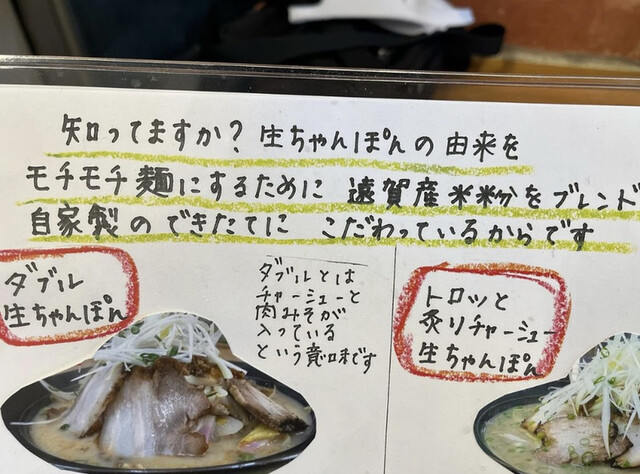 知ってますか？生ちゃんぽんの由来を
モチモチ麺にするために 遠賀産米粉をブレンド
自家製のできたてに こだわっているからです
ダブル
生ちゃんぽん
ダブルとは
チャーシューと
肉みそが
入っている
という意味です
トロッと
炙りチャーシュー
生ちゃんぽん